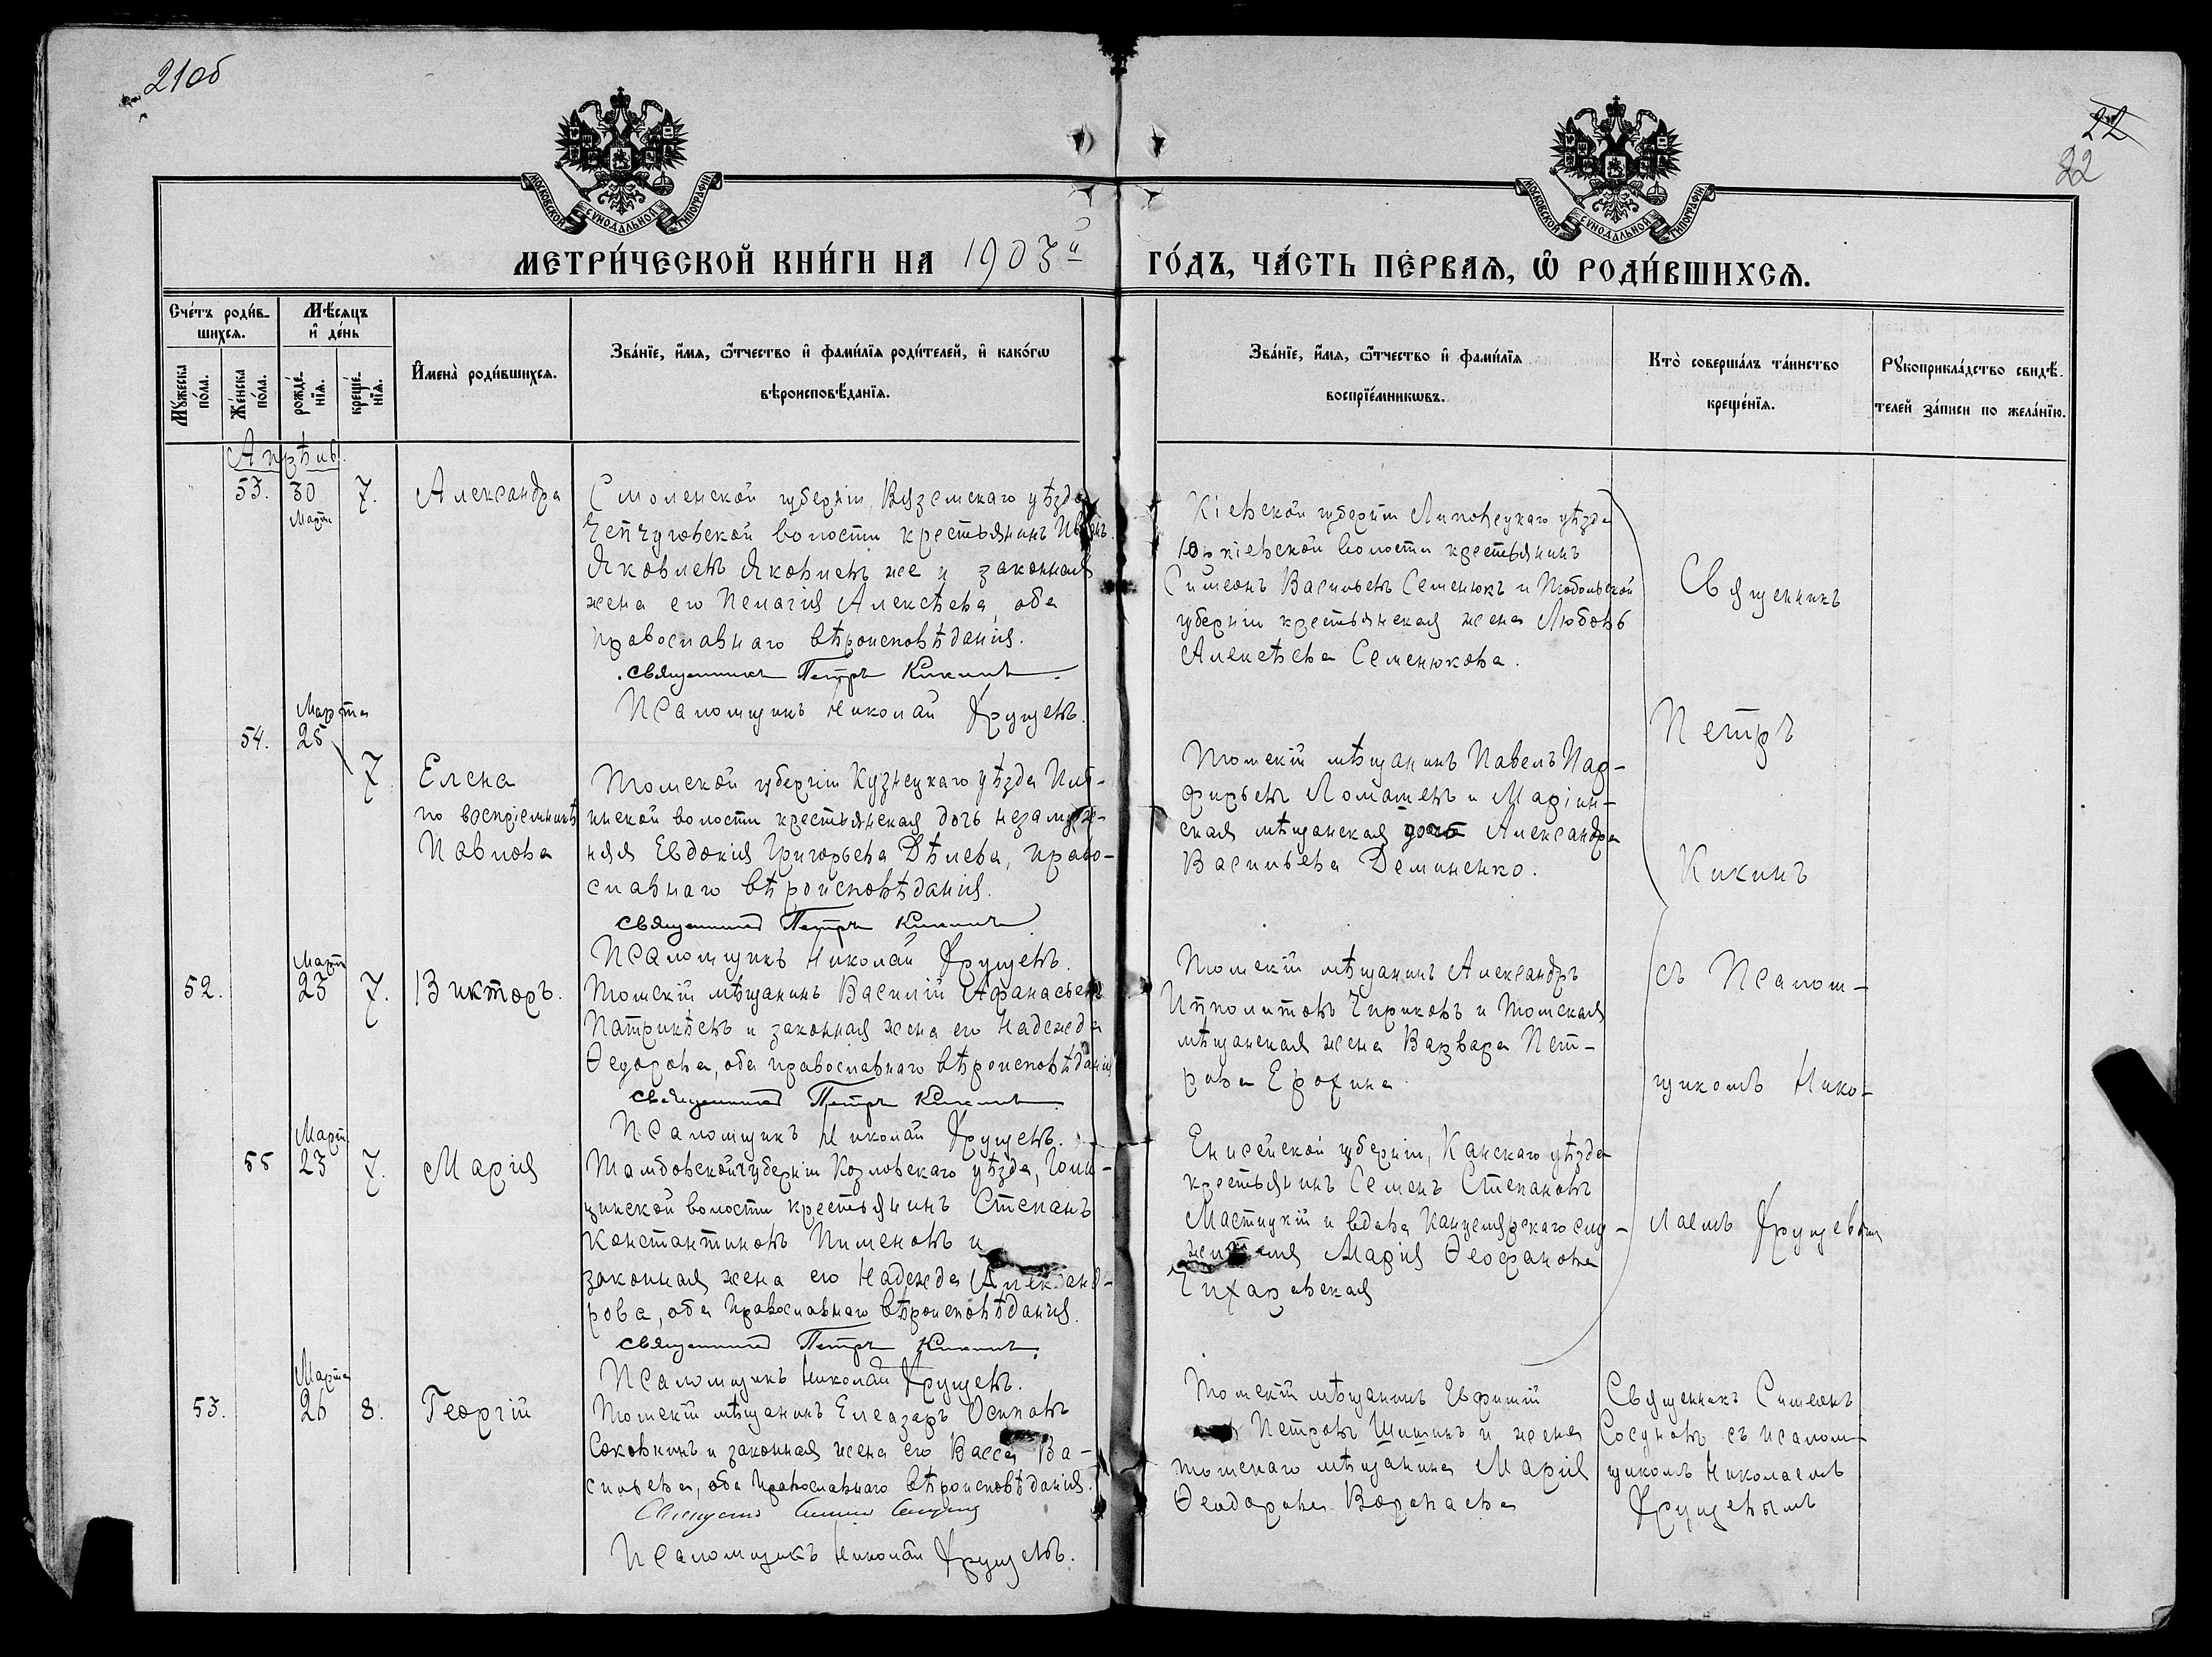 21об
22
22
МОСКОВСКОЙ СѴНОДАЛЬНОЙ ТИПОГРАФІИ
МОСКОВСКОЙ СѴНОДАЛЬНОЙ ТИПОГРАФІИ
МЕТРИ́ЧЕСКОЙ КНИ́ГИ НА 1903й ГО́ДЪ, ЧА́СТЬ ПЕ́РВАѦ, Ѿ РОДИ́ВШИХСѦ.
Сче́тъ роди́в-
шихсѧ.
Мꙋ́жеска по́ла.
Же́нска по́ла.
Мѣ́сѧцъ
и҆ де́нь
рожде́-
нїѧ.
креще́-
нїѧ.
И҆мена̀ роди́вшихсѧ.
Зва́нїе, и҆́мѧ, ѻ҆́тчество и҆ фами́лїѧ роди́телей, и҆ како́гѡ
вѣроисповѣ́данїѧ.
Зва́нїе, и҆́мѧ, ѻ҆́тчество и҆ фами́лїѧ
воспрїе́мникѡвъ.
Кто̀ соверша́лъ та́инство
креще́нїѧ.
Рꙋкоприкла́дство свидѣ́-
телей за́писи по жела́нїю.
Апрѣль
53. 30 7. Александра
Марта
Смоленской губерніи, Вяземскаго уѣзда
волости крестьянинъ
Яковлевъ Яковлевъ же и законная
жена его Пелагія Алексѣева, оба
православнаго вѣроисповѣданія.
Священникъ Петръ Кикинъ
Псаломщикъ Николай Хрущевъ.
Кіевской губерніи Липовецкаго уѣзда
волости крестьянинъ
Симеонъ Васильевъ Семенюкъ и Тобольской
губерніи крестьянская жена Любовь
Алексѣева Семенюкова.
Священникъ
Петръ
Кикинъ
съ Псалом-
щикомъ Нико-
лаемъ Хрущевымъ
54. Марта
25
7 Елена
по воспріемнику
Павлова
Томской губерніи Кузнецкаго уѣзда Иль-
инской волости крестьянская дочь незамуж-
няя Евдокія Григорьева Дѣлева, право-
славнаго вѣроисповѣданія.
Священникъ Петръ Кикинъ
Псаломщикъ Николай Хрущевъ.
Томскій мѣщанинъ Павелъ Пар-
фирьевъ Ломашевъ и Маріин-
ская мѣщанская дочь Александра
Васильева Деминенко.
52. Марта
23 7. Викторъ.
Томскій мѣщанинъ Василій Афанасьевъ
Патрикѣевъ и законная жена его Надежда
Ѳедорова, оба православнаго вѣроисповѣданія
Священникъ Петръ Кикинъ
Псаломщикъ Николай Хрущевъ.
Томскій мѣщанинъ Александръ
Ипполитовъ Чириковъ и Томская
мѣщанская жена Варвара Пет-
рова Ерохина
55 Март.
23 7. Марія
Тамбовской губерніи Козловскаго уѣзда, Голи-
цинской волости крестьянинъ Степанъ
Константиновъ Пименовъ и
законная жена его Надежда Александ-
рова, оба православнаго вѣроисповѣданія.
Священникъ Петръ Кикинъ
Псаломщикъ Николай Хрущевъ.
Енисейской губерніи, Канскаго уѣзда
крестьянинъ Семенъ Степановъ
Мастицкій и вдова Канцелярскаго слу-
жителя Марія Ѳеофанова
53. Марта
26 8. Георгій
Томскій мѣщанинъ Елеазаръ Осиповъ
Соковнинъ и законная жена его Васса Ва-
сильева, оба православнаго вѣроисповѣданія.
Псаломщикъ Николай Хрущевъ.
Томскій мѣщанинъ Евфимій
Петровъ Шишинъ и жена
томскаго мѣщанина Марія
Ѳеодорова Воропаева
Священникъ Симеонъ
Сосуновъ съ псалом-
щикомъ Николаемъ
Хрущевымъ